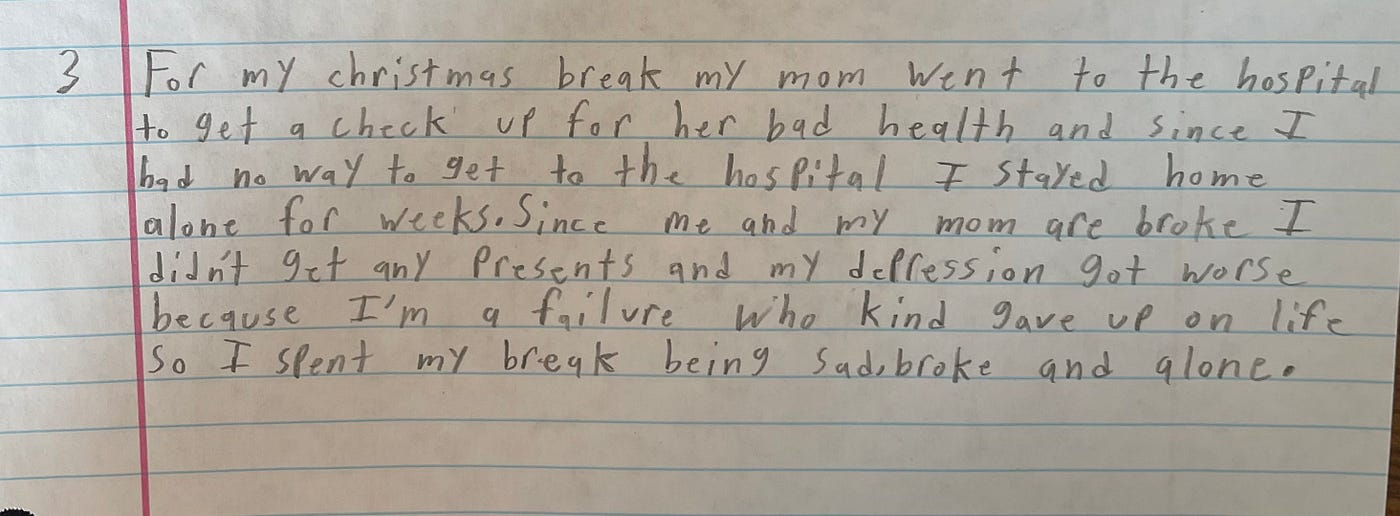 3 For my christmas break my mom went to the hospital
to get a check up for her bad health and since I
had no way to get to the hospital I stayed home
alone for weeks. Since me and my mom are broke I
didn't get any presents and my depression got worse
because I'm a failure who kind gave up on life
so I spent my break being sad, broke and alone.